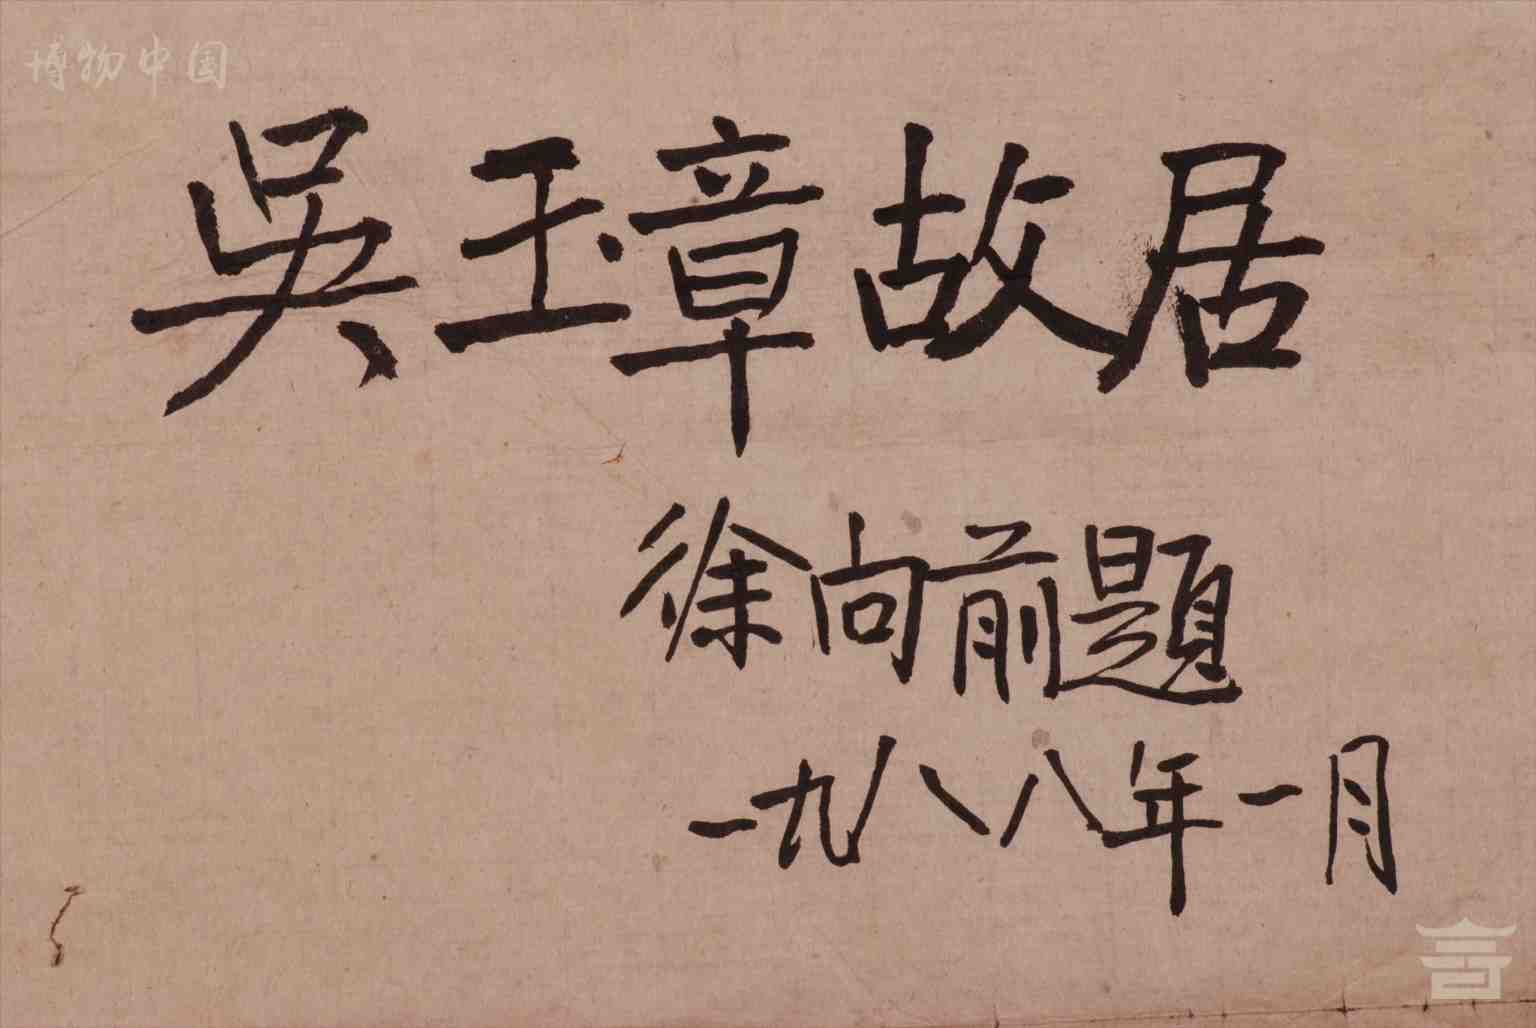 博物中国
吳玉章故居
徐向前題
一九八八年一月